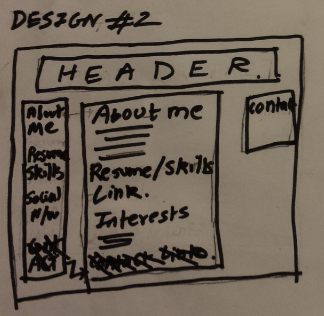 DESIGN #2
HEADER.
About
Me
Resume
Skills
Social
N/W
Act
About me
Resume/Skills
Link.
Interests
Contac